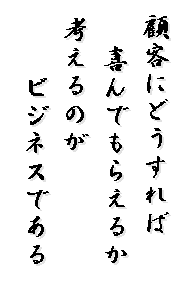 顧客にどうすれば
喜んでもらえるか
考えるのが
ビジネスである